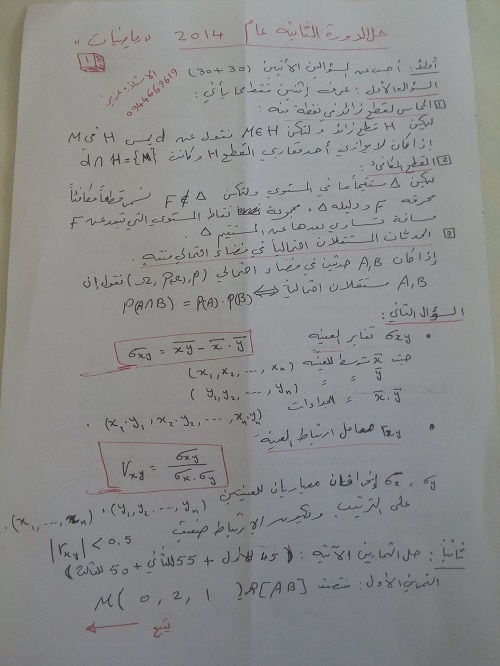 حل الدورة الثانية عام 2014 "رياضيات"
1
الأستاذ:
0944669619
أولاً: أجب عن السؤالين الآتيين (30+30)
السؤال الأول: عرف إثنين فقط مما يأتي:
1 المماس لقطع زائد في نقطة منه:
ليكن H قطع زائد و لتكن M∈H نقول عن d يمس H في M
إذا كان لا يوازي أحد مقاربي القطع H وكانت d∩H={M}
2 القطع المكافئ:
ليكن Δ مستقيماً ما في المستوي ولتكن F∉Δ نسمي قطعاً مكافئاً
محرقه F ودليله Δ، مجموعة نقاط المستوي التي تبعد عن F
مسافة تساوي بعدها عن المستقيم Δ.
3 الحدثان المستقلان احتمالياً في فضاء احتمالي منته:
إذا كان A,B حدثين في فضاء احتمالي (Ω, P(Ω), P) نقول إن
A,B مستقلان احتمالياً ⟺ P(A∩B) = P(A)·P(B)
السؤال الثاني:
• σxy تغاير العينة
σxy = x̄ȳ - x̄·ȳ
حيث x̄ متوسط للعينة (x₁, x₂, ..., xn)
ȳ " " (y₁, y₂, ..., yn)
x̄·ȳ " الجداءات (x₁·y₁, x₂·y₂, ..., xn·yn).
• rxy معامل ارتباط العينة
rxy = σxy / σx·σy
σx, σy إنحرافان معياريان للعينتين (y₁, y₂, ..., yn), (x₁, ..., xn).
على الترتيب ويكون الإرتباط ضعيف |rxy| < 0.5
ثانياً: حل التمارين الآتية: (45 للأول + 55 للثاني + 50 للثالث)
التمرين الأول: منتصف [AB] M(0, 2, 1)
يتبع